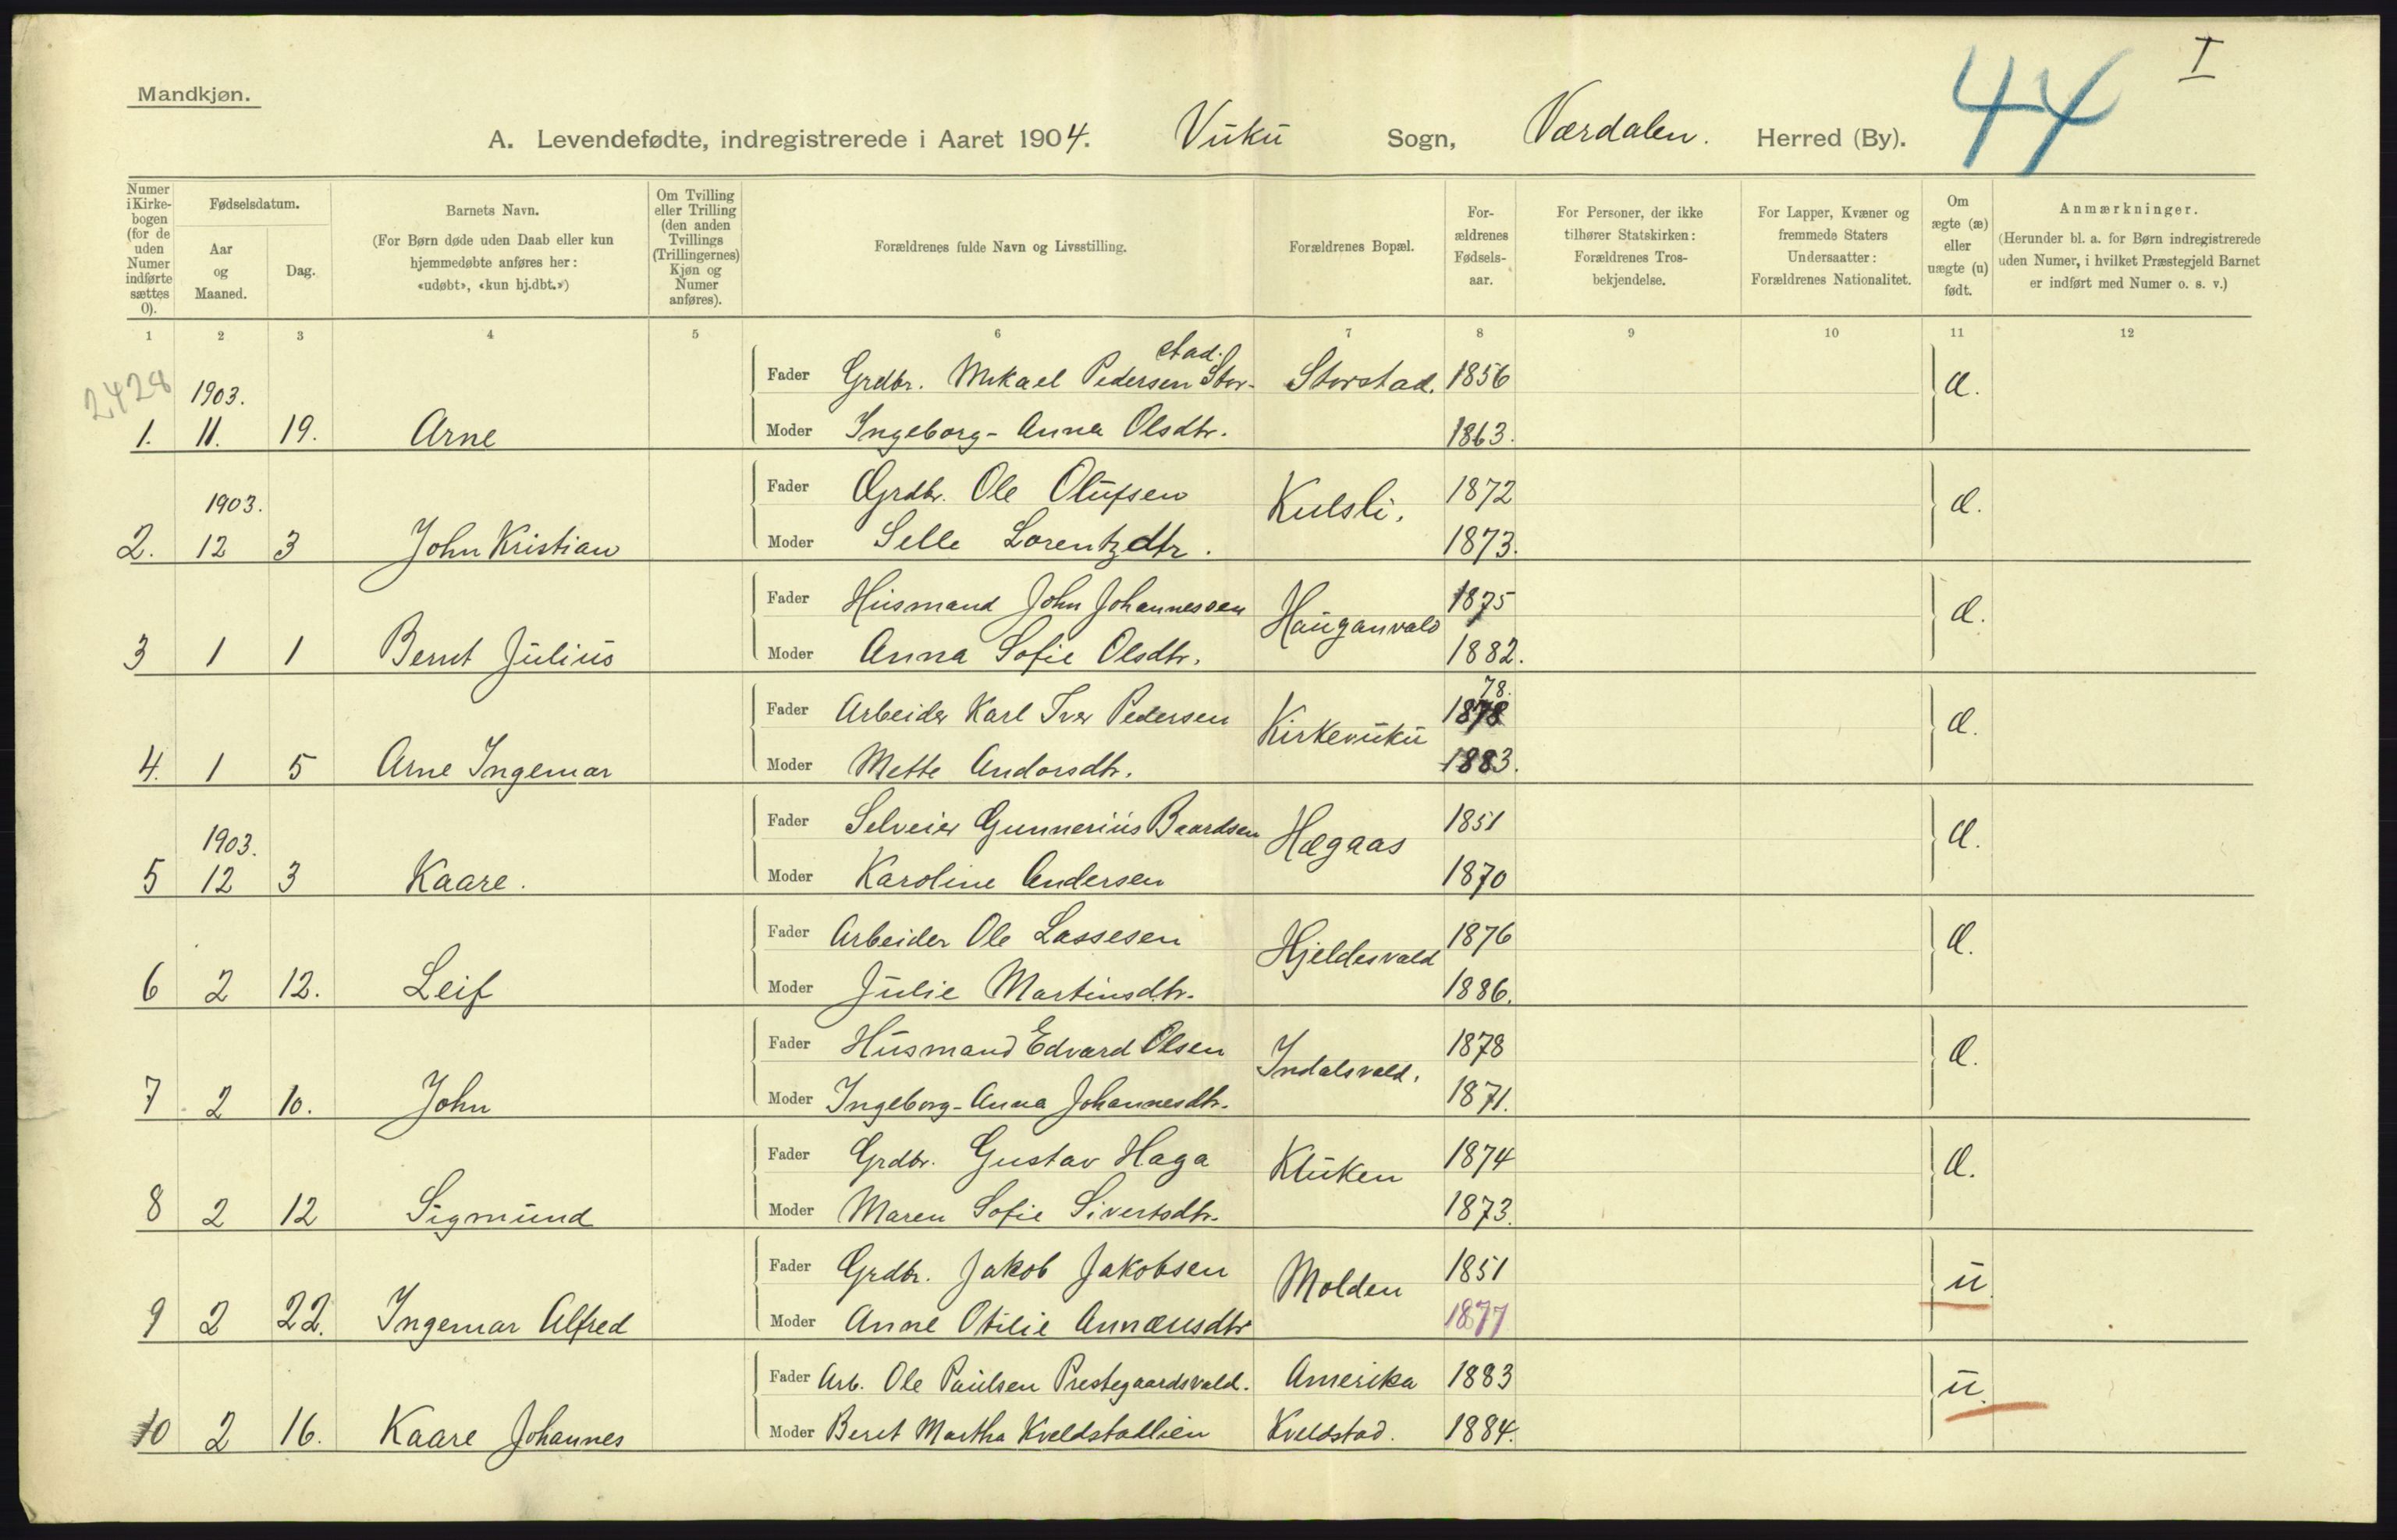 I
44
Mandkjøn.
A. Levendefødte, indregistrerede i Aaret 1904. Vuku Sogn, Værdalen. Herred (By).
Numer i Kirke- bogen (for de uden Numer indførte sættes 0).
Fødselsdatum.
Aar og Maaned.
Dag.
Barnets Navn.
(For Børn døde uden Daab eller kun hjemmedøbte anføres her: «udøbt», «kun hj.dbt.»)
Om Tvilling eller Trilling (den anden Tvillings (Trillingernes) Kjøn og Numer anføres).
Forældrenes fulde Navn og Livsstilling.
Forældrenes Bopæl.
For- ældrenes Fødsels- aar.
For Personer, der ikke tilhører Statskirken: Forældrenes Tros- bekjendelse.
For Lapper, Kvæner og fremmede Staters Undersaatter: Forældrenes Nationalitet.
Om ægte (æ) eller uægte (u) født.
Anmærkninger.
(Herunder bl. a. for Børn indregistrerede uden Numer, i hvilket Præstegjeld Barnet er indført med Numer o. s. v.)
1 2 3 4 5 6 7 8 9 10 11 12
2428
1903. Fader Grdbr. Mikael Pedersen Stor- stad. Storstad. 1856 æ.
1. 11. 19. Arne Moder Ingeborg-Anna Olsdtr. 1863.
1903. Fader Grdbr. Ole Olufsen Kulsli. 1872 æ.
2. 12 3 John Kristian Moder Selle Lorentzdtr. 1873.
Fader Husmand John Johannessen Hauganvald 1875 æ.
3 1 1 Bernt Julius Moder Anna Sofie Olsdtr. 1882.
78.
Fader Arbeider Karl Iver Pedersen Kirkevuku 1878 æ.
4. 1 5 Arne Ingemar Moder Mette Andorsdtr. 1883.
1903. Fader Selveier Gunnerius Baardsen Hægaas 1851 æ.
5 12 3 Kaare. Moder Karoline Andersen 1870
Fader Arbeider Ole Lassesen Hjeldesvald 1876 æ.
6 2 12. Leif Moder Julie Martinsdtr. 1886.
Fader Husmand Edvard Olsen Indalsvald. 1878 æ.
7 2 10. John Moder Ingeborg-Anna Johannesdtr. 1871.
Fader Grdbr. Gustav Haga Kluken 1874 æ.
8 2 12 Sigmund Moder Maren Sofie Sivertsdtr. 1873.
Fader Grdbr. Jakob Jakobsen Molden 1851 u.
9 2 22. Ingemar Alfred Moder Anne Otilie Annæusdtr 1877
Fader Arb. Ole Paulsen Prestegaardsvald. Amerika 1883 u.
10 2 16. Kaare Johannes Moder Beret Martha Kveldstadlien Kveldstad. 1884.